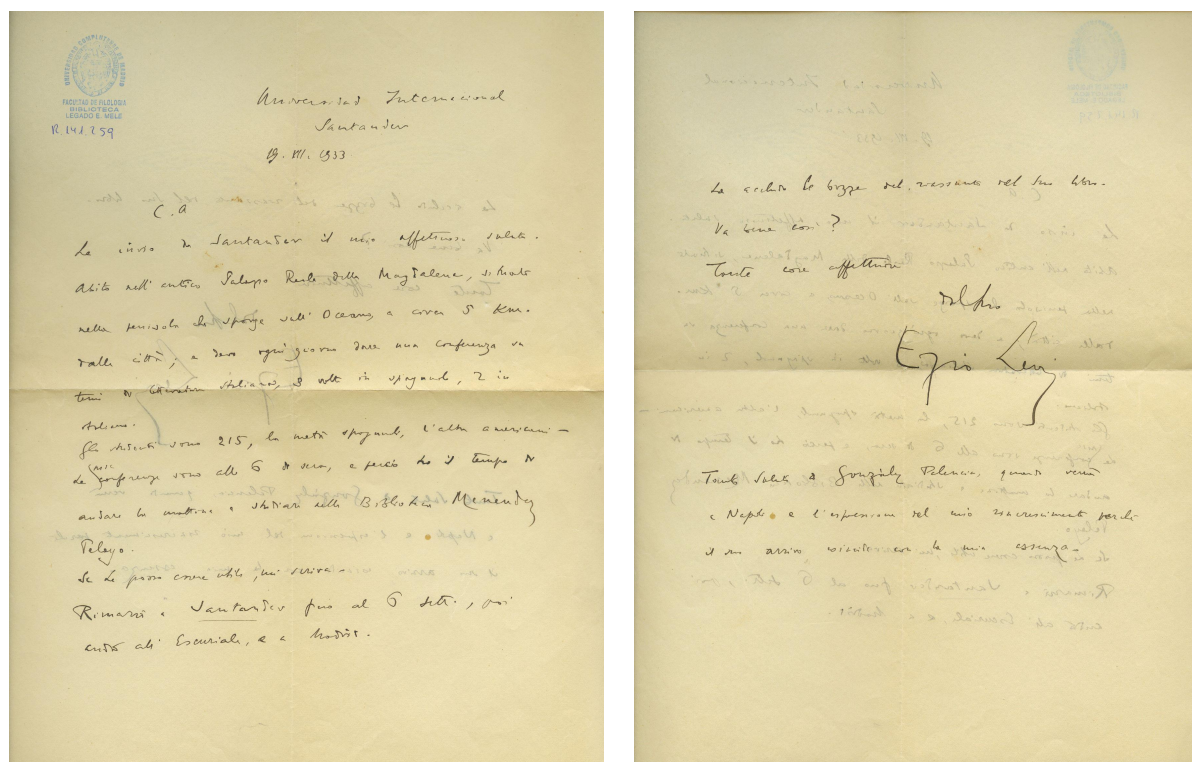 UNIVERSIDAD COMPLUTENSE DE MADRID
FACULTAD DE FILOLOGIA
BIBLIOTECA
LEGADO E. MELE
R.141.259
Universidad Internacional
Santander
19. VII. 1933
C. A
Le invio da Santander il mio affettuoso saluto.
Abito nell'antico Palazzo Reale della Magdalena, situato
nella penisola che sporge sull'Oceano, a circa 5 Km.
dalla città; e devo ogni giorno dare una conferenza su
temi di letteratura italiana, 3 volte in spagnolo, 2 in
italiano.
Gli studenti sono 215, la metà spagnoli, l'altra americani –
Le conferenze sono alle 6 di sera, e perciò ho il tempo di
andare la mattina a studiare nella Biblioteca Menendez
Pelayo.
Se Le posso essere utile, mi scriva –
Rimarrò a Santander fino al 6 sett., poi
andrò all'Escuriale, e a Madrid.
Le accludo le bozze del riassunto del Suo libro.
Va bene così?
Tante cose affettuose
dal suo
Ezio Levi
Tanti saluti a González Palencia, quando verrà
a Napoli e l'espressione del mio rincrescimento perché
il suo arrivo coincide con la mia assenza –